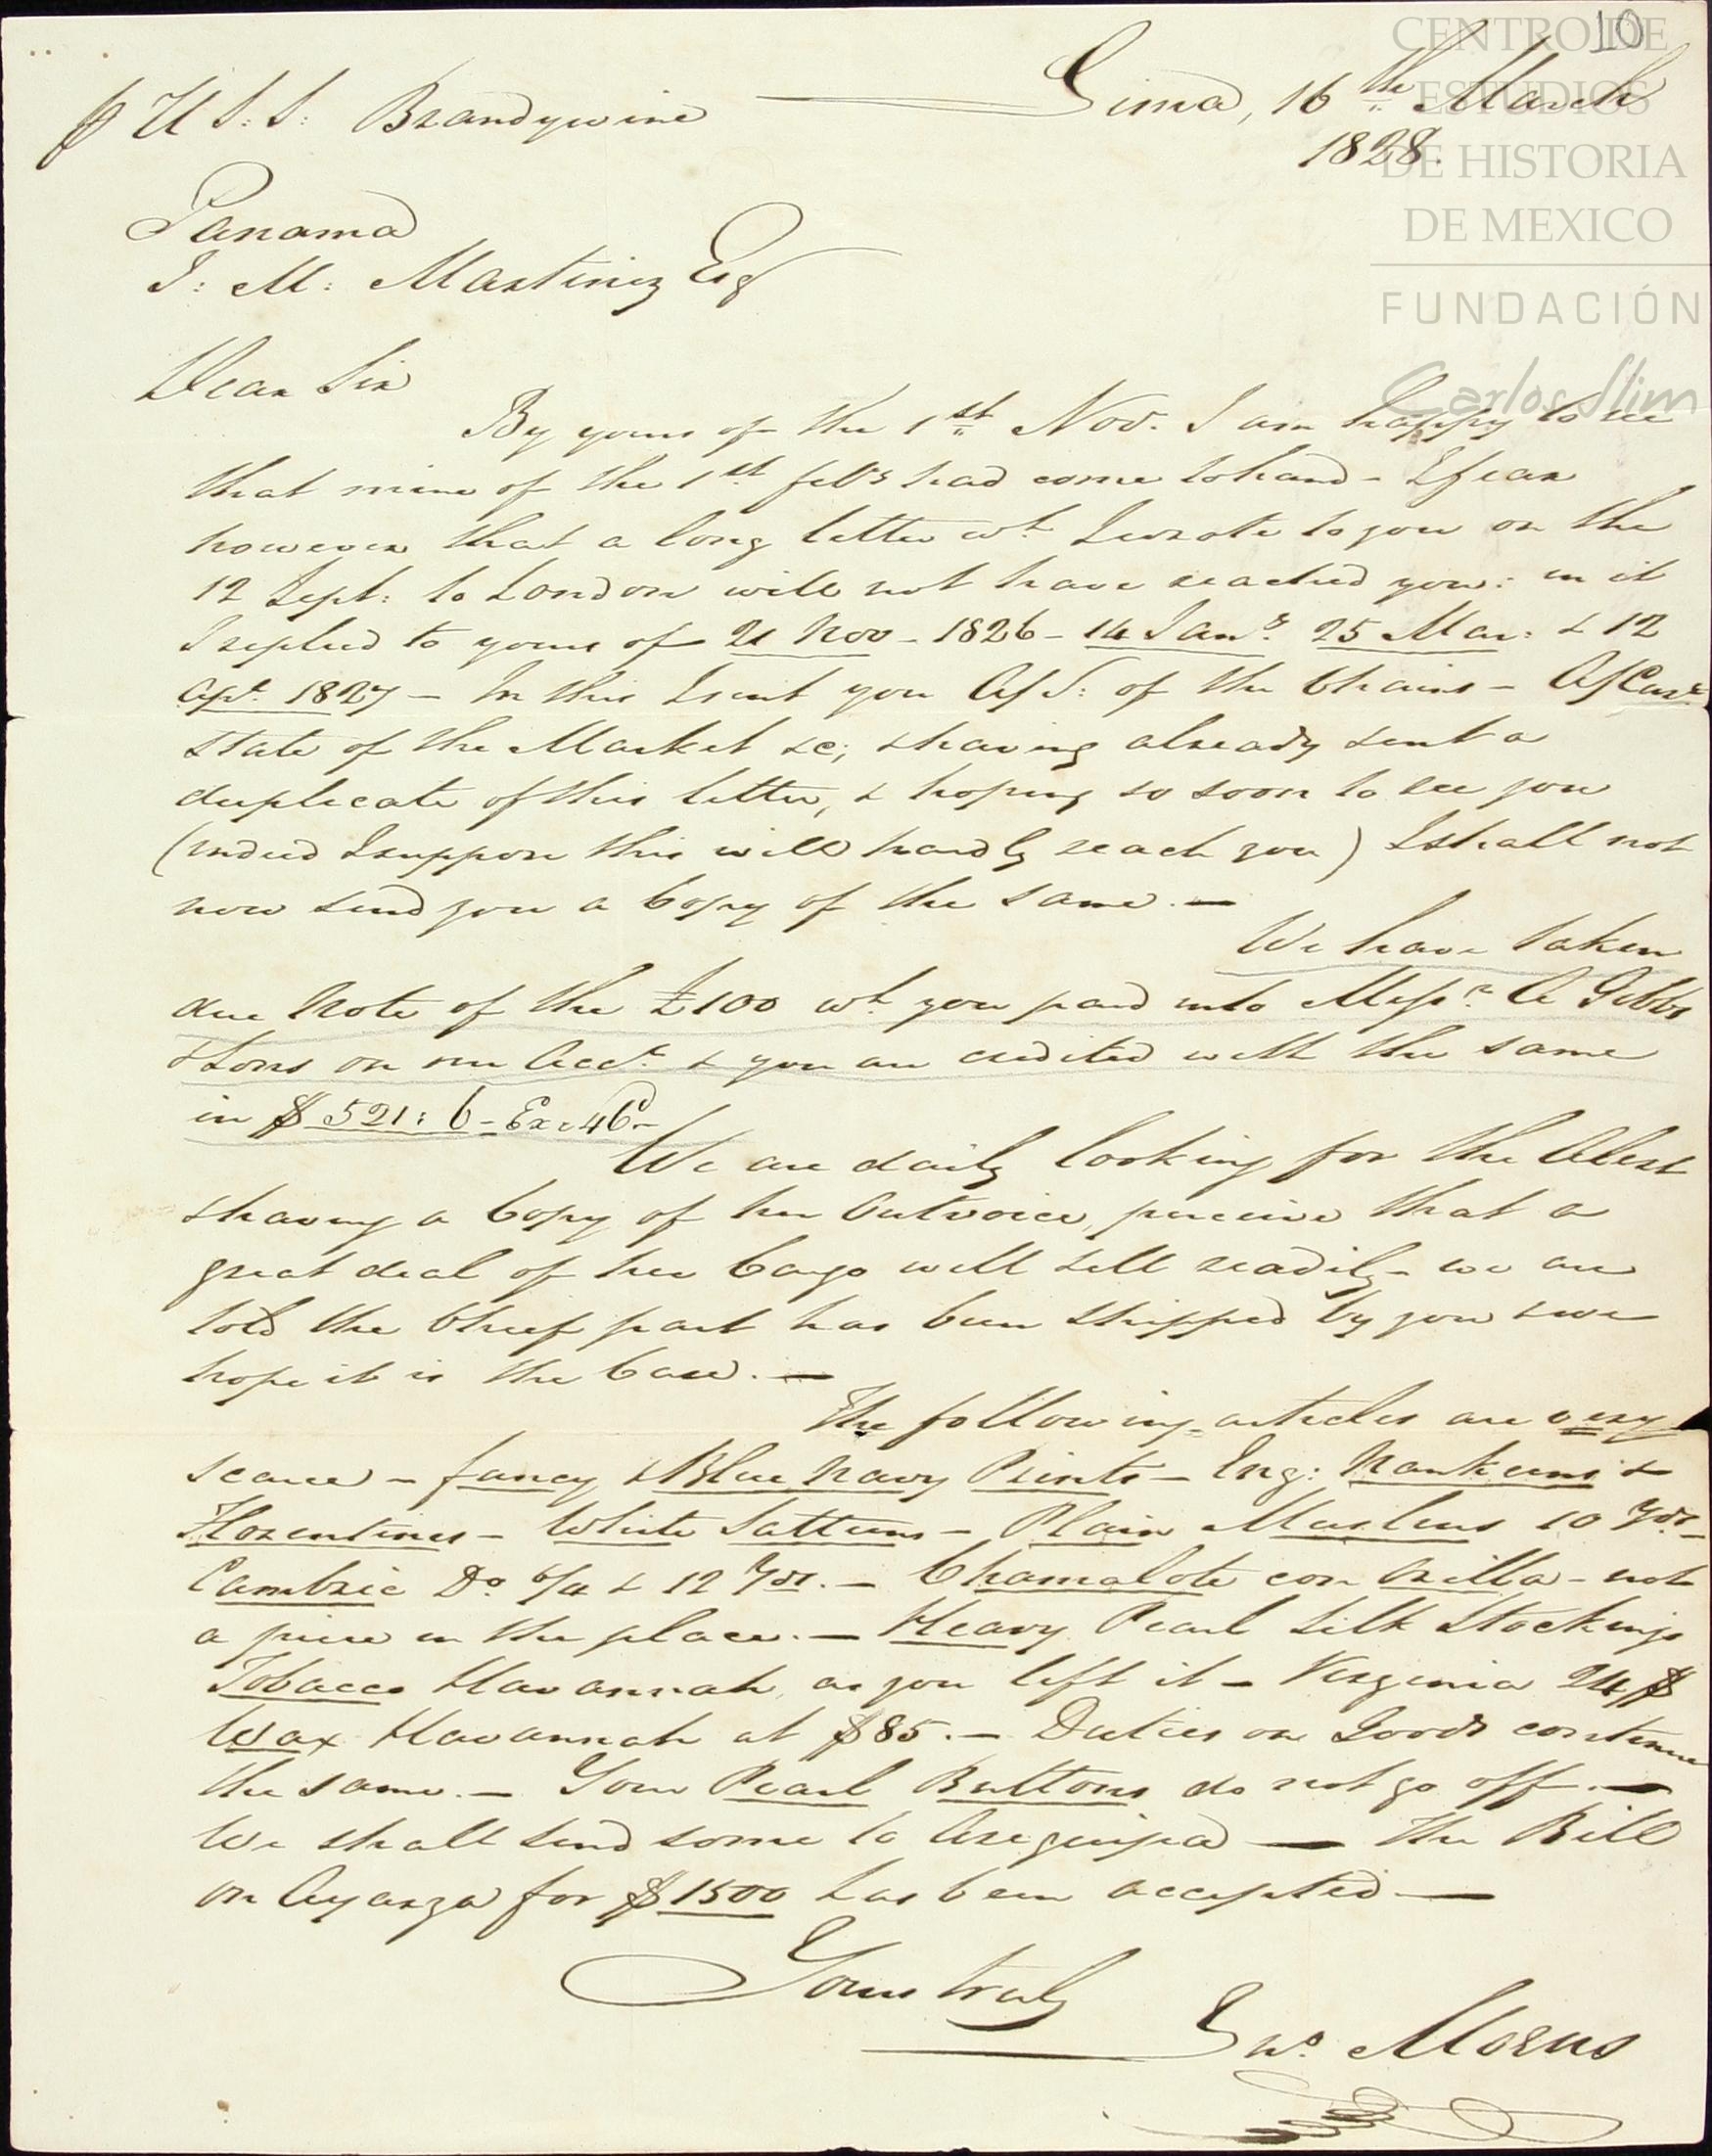 10
CENTRO DE
ESTUDIOS
DE HISTORIA
DE MEXICO
FUNDACIÓN
Carlos Slim
p U S: S: Brandywine Lima, 16th March
1828.
Panama
J: M: Martinez Esq
Dear Sir
By yours of the 1st Nov. I am happy to see
that mine of the 1st feby had come to hand - I fear
however that a long letter wh I wrote to you on the
12 Sept: to London will not have reached you: in it
I replied to yours of 21 Nov - 1826 - 14 Jany. 25 Mar: & 12
Apl. 1827 - In this I sent you A/S: of the Chains - A/Curt
state of the Market &c; & having already sent a
duplicate of this letter, & hoping so soon to see you
(indeed I suppose this will hardly reach you) I shall not
now send you a Copy of the same. —
We have taken
due Note of the £100 wh you paid into Messrs A Gibbs
& Sons on our Acct. & you are credited with the same
in $521: 6 - Exe 46d -
We are daily looking for the Alert
& having a Copy of her Invoice, perceive that a
great deal of her Cargo will sell readily - we are
told the Chief part has been shipped by you & we
hope it is the Case. —
The following articles are very
scarce - fancy & Blue Navy Prints - Eng: Nankeens &
Florentines - White Satteens - Plain Muslins 10 Yds -
Cambric Do 6/4 & 12 Yds. - Chamalote con orilla - not
a piece in the place. - Heavy Pearl Silk Stockings
Tobacco Havannah, as you left it - Virginia 24 $
Wax Havannah at $85. - Duties on Goods continue
the same. - Your Pearl Buttons do not go off. -
We shall send some to Arequipa — The Bill
on Ayarza for $1500 has been accepted. —
Yours truly
Jno. Moens